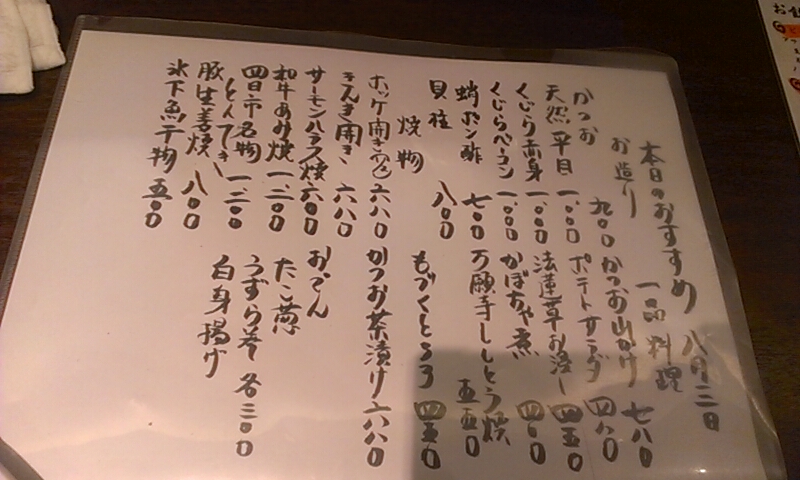 本日のおすすめ 八月二日
お造り
かつお 九〇〇
天然平目 一、〇〇〇
くじら赤身 一、〇〇〇
くじらベーコン 一、〇〇〇
蛸ポン酢 七〇〇
貝柱 八〇〇
焼物
ホッケ開き 六八〇
きんき開き 六八〇
サーモンハラス焼 六〇〇
和牛あみ焼 一、二〇〇
四日市名物とんてき 一、二〇〇
豚生姜焼 八〇〇
氷下魚干物 五〇〇
一品料理
かつお山かけ 七八〇
ポテトサラダ 四八〇
法蓮草お浸し 四五〇
かぼちゃ煮 四〇〇
万願寺ししとう焼 五五〇
もずくとろろ 四五〇
かつお茶漬け 六八〇
おでん
たこ葱
うずら巻 各三〇〇
白身揚げ